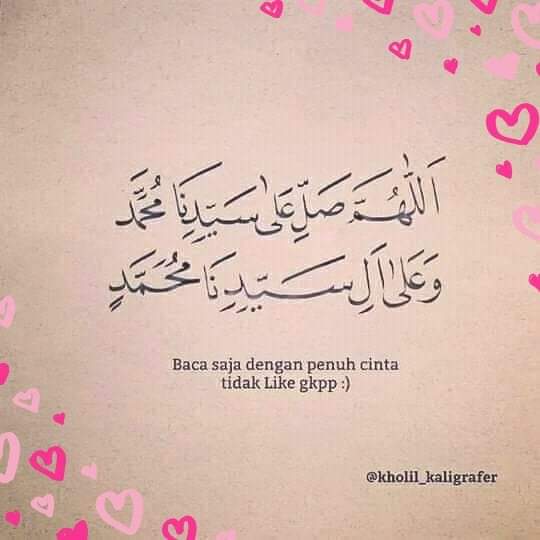 اَللّٰهُمَّ صَلِّ عَلٰى سَيِّدِنَا مُحَمَّد
وَعَلٰى اٰلِ سَيِّدِنَا مُحَمَّدٍ
Baca saja dengan penuh cinta
tidak Like gkpp :)
@kholil_kaligrafer